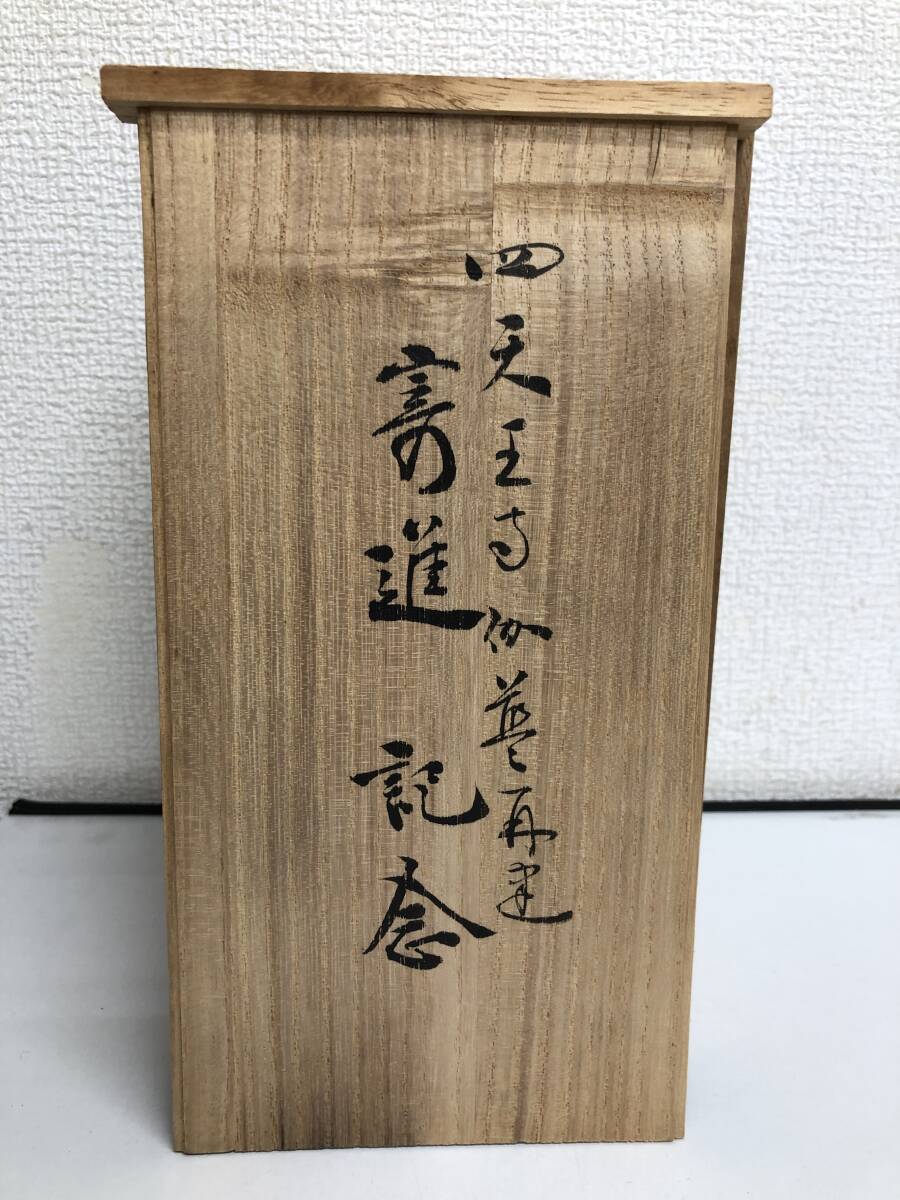 四天王寺伽藍再建
寄進記念